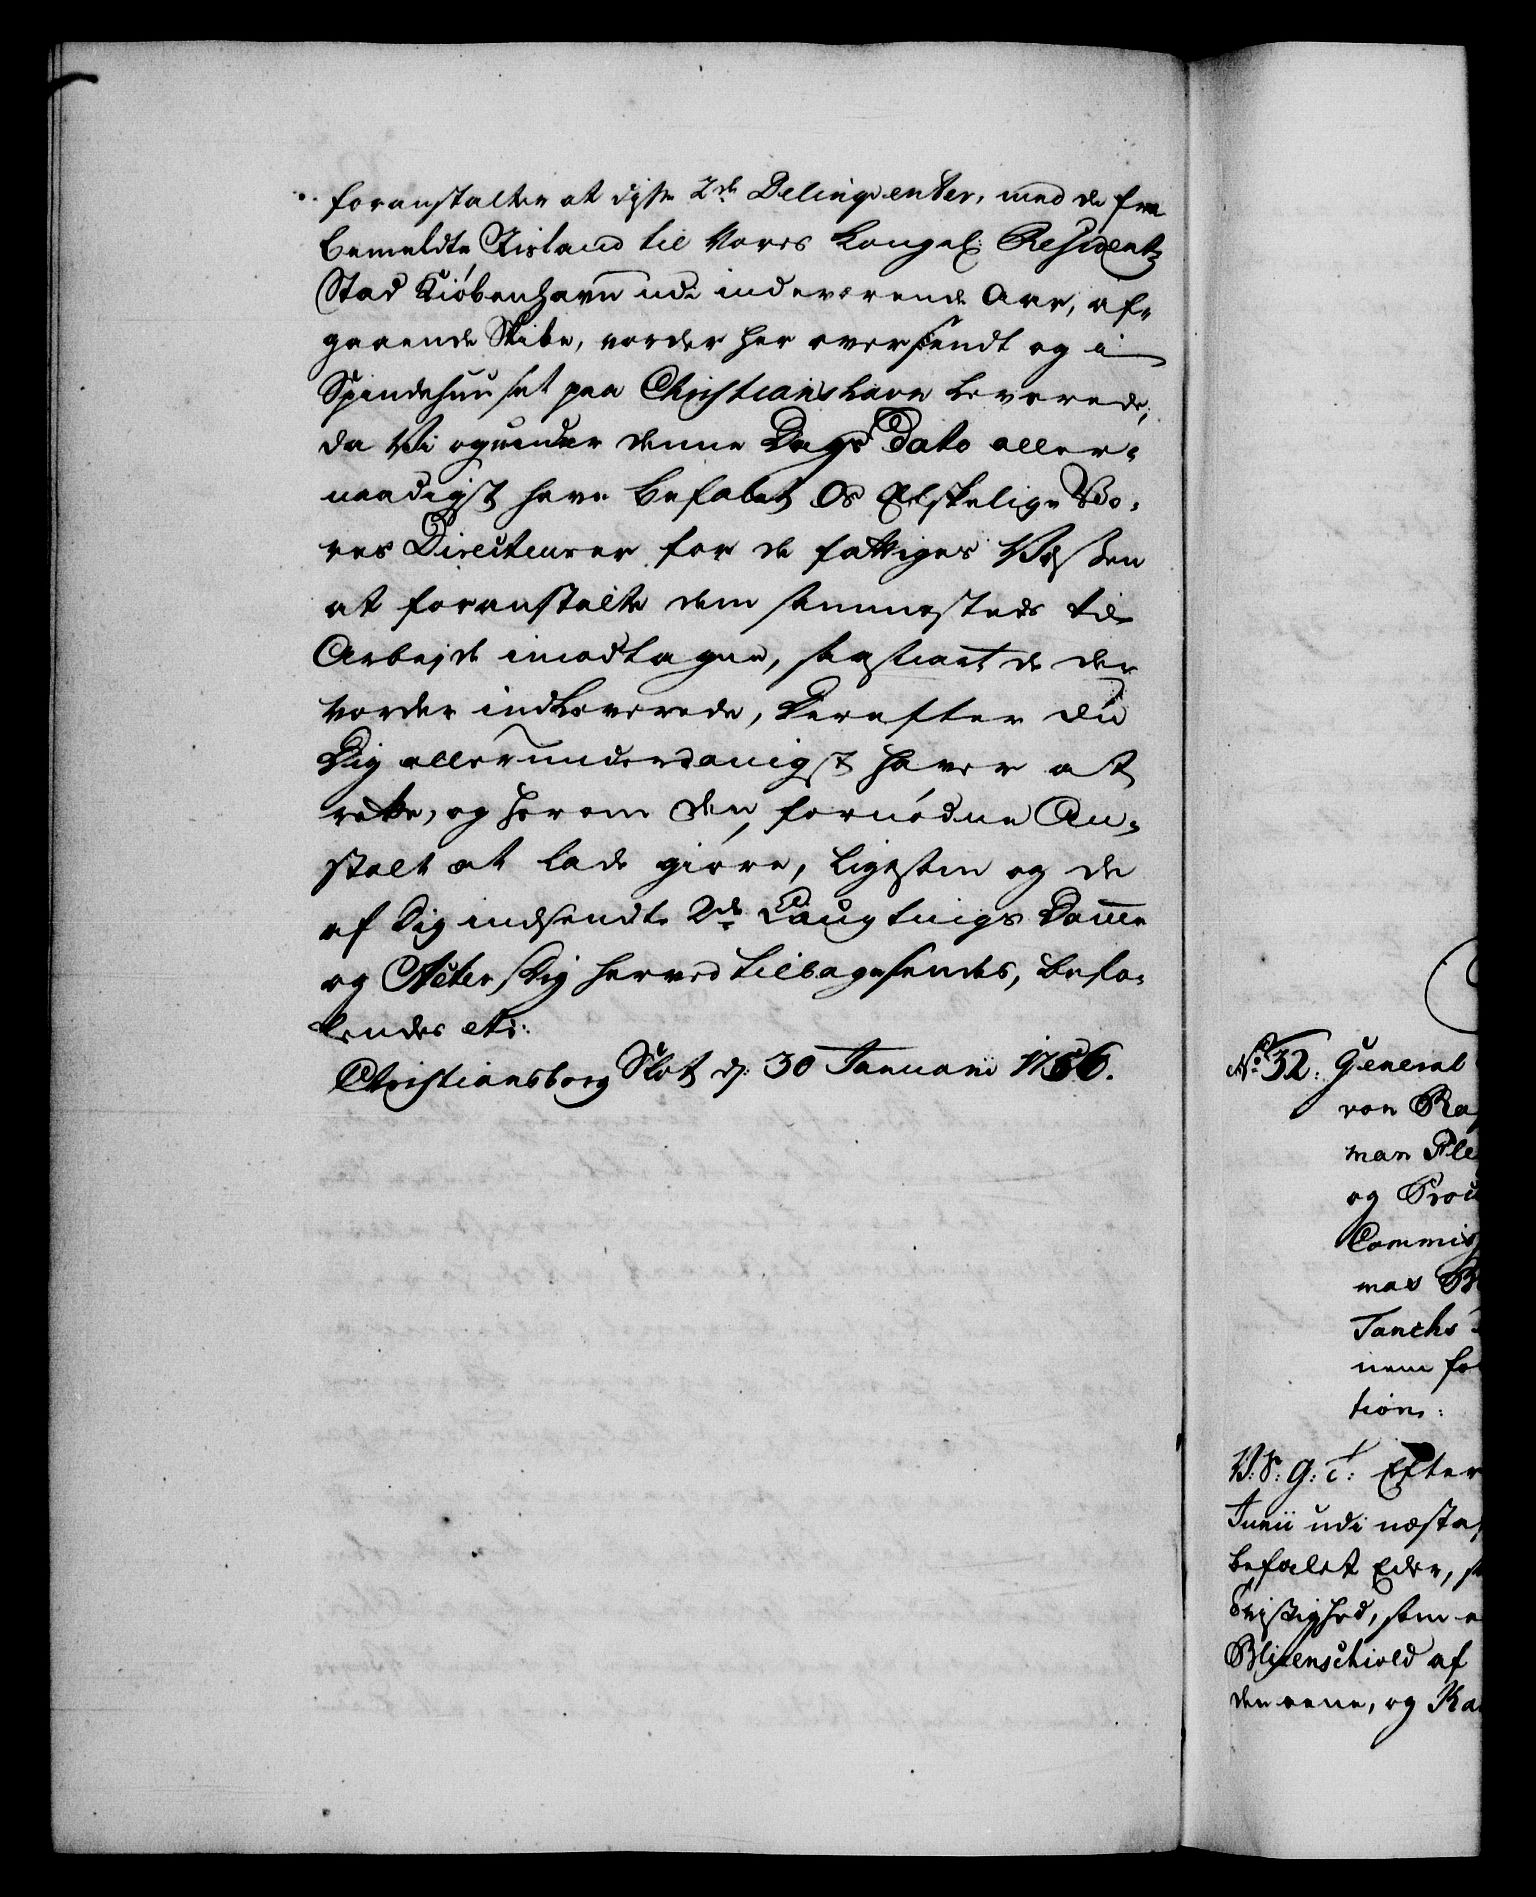 foranstalter at disse 2de Delinqventer, med de fra
bemeldte Iisland til Vores Kongel: Residentz
Stad Kiöbenhavn udi indeværende Aar, af-
gaaende Skibe, vorder her oversendt og i
Spindehuuset paa Christianshavn leverede,
da Vi og under denne Dags Dato aller-
naadigst have befalet Os Elskelige Vo-
res Directeurer for de fattiges Væsen
at foranstalte dem sammesteds til
Arbejde imodtagne, saasnart de der
vorder indleverede, Derefter du
Dig allerunderdanigst haver at
rette, og herom den fornödne An-
stalt at lade giöre, ligesom og de
af Dig indsendte 2de Laugtings Domme
og Acter Dig herved tilbagesendes, Befa-
lendes etc:
Christiansborg Slot d: 30 Januarii 1756.
No 32: General
von
man
og
Commis
Tanchs
nem for
tion:
V: S: G: T: Efter
Junii udi næst
befalet Eder,
som
af
og